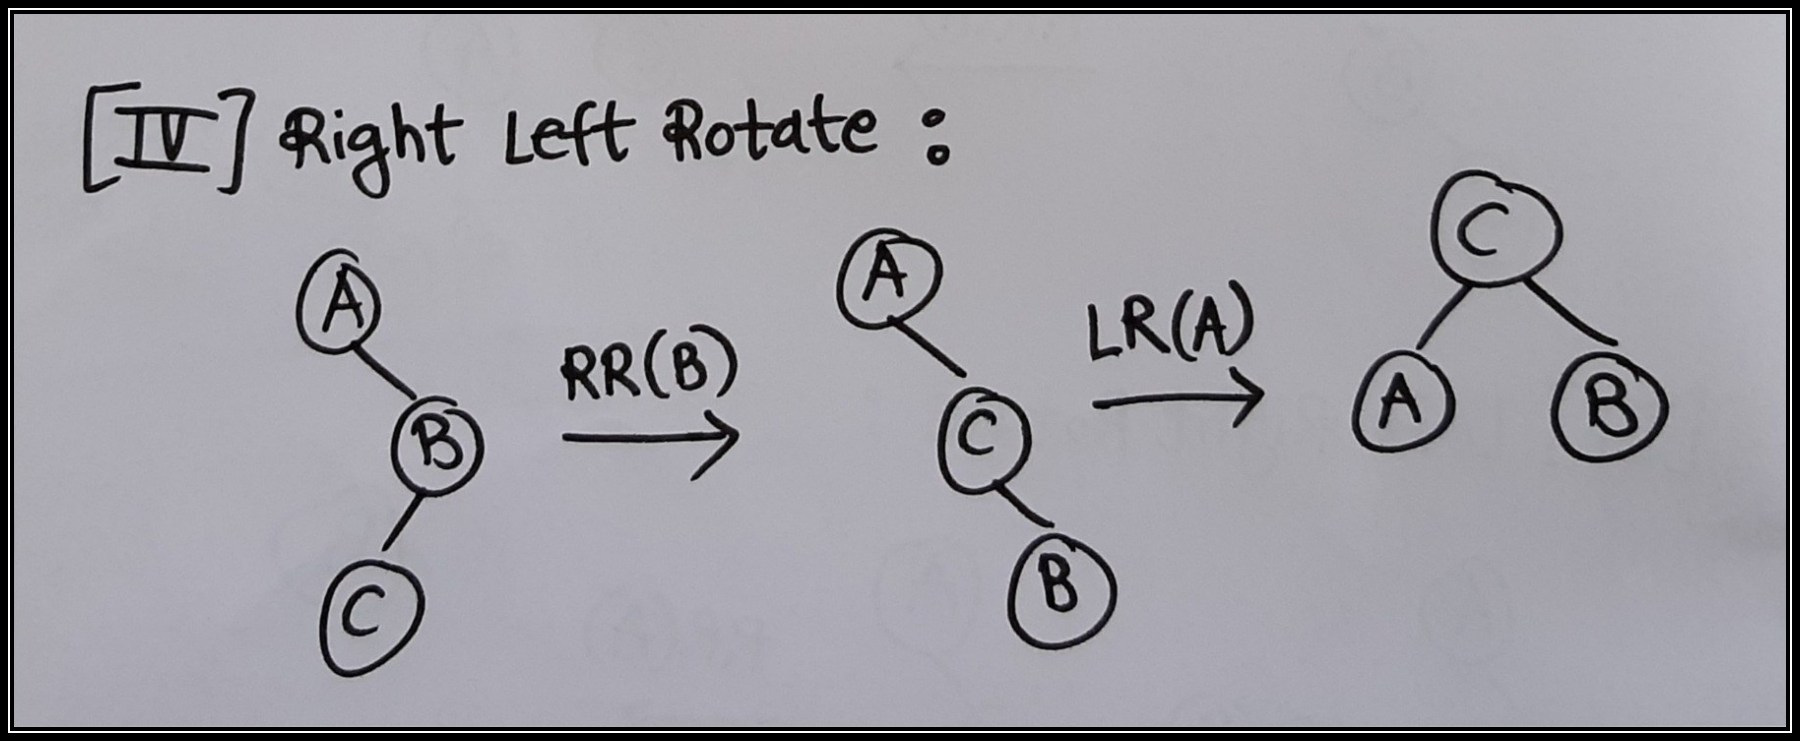 [IV] Right Left Rotate :
A
B
C
RR(B)
A
C
B
LR(A)
C
A
B